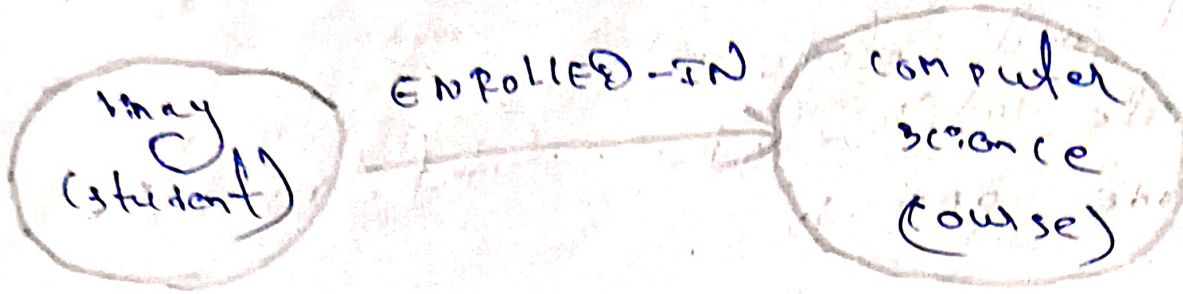 vinay
(student)
ENROLLED-IN
computer
science
(course)